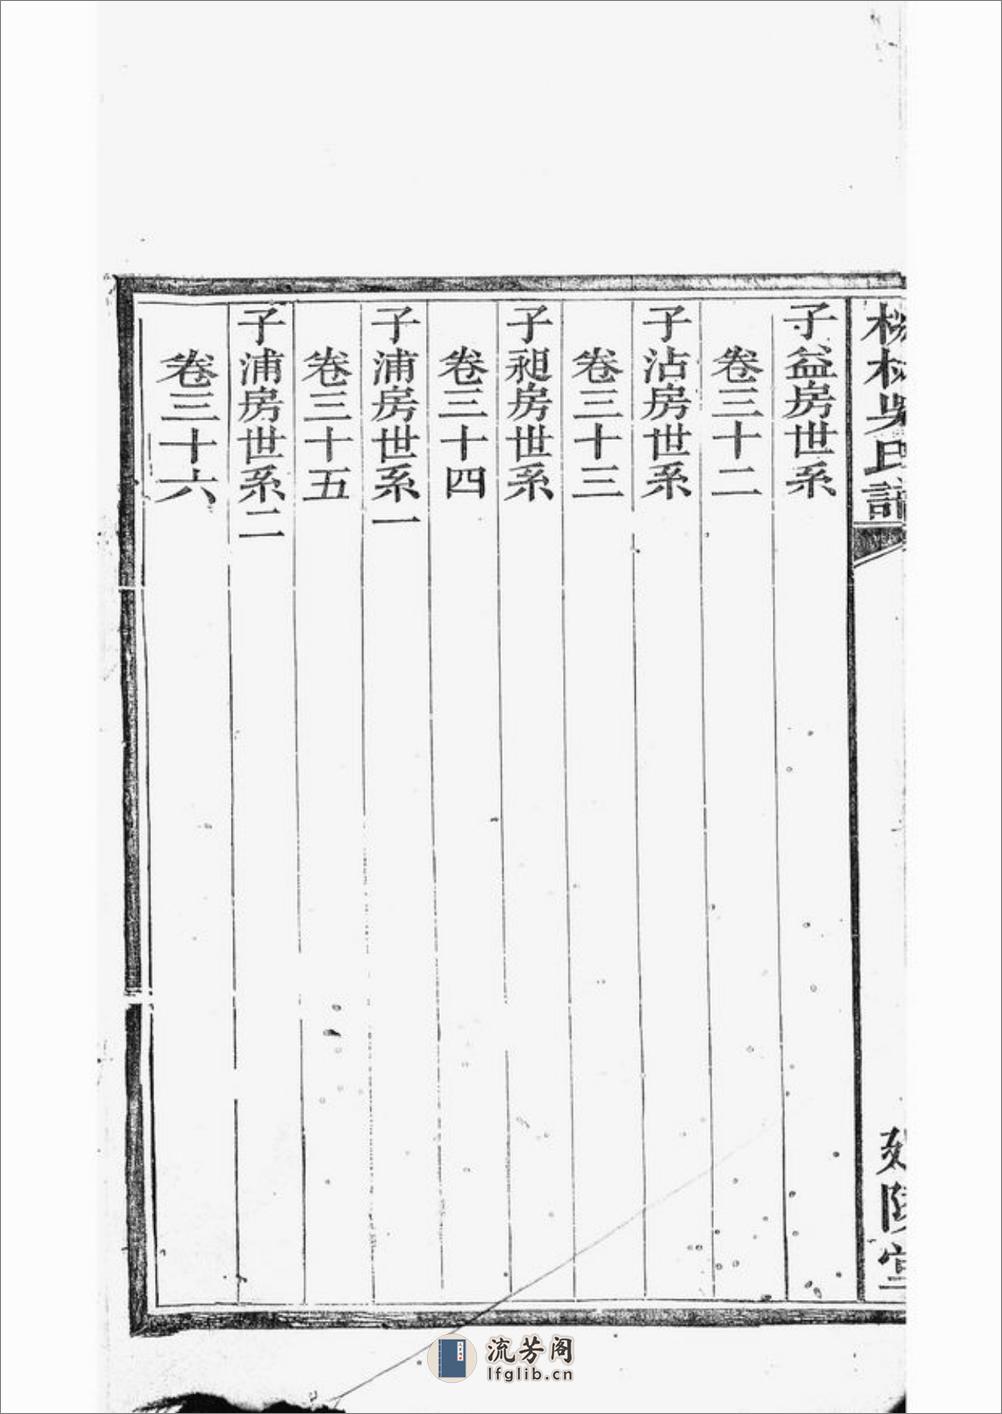 吳氏譜
子益房世系
卷三十二
子沾房世系
卷三十三
子昶房世系
卷三十四
子浦房世系一
卷三十五
子浦房世系二
卷三十六
陵堂
流芳阁
lfglib.cn